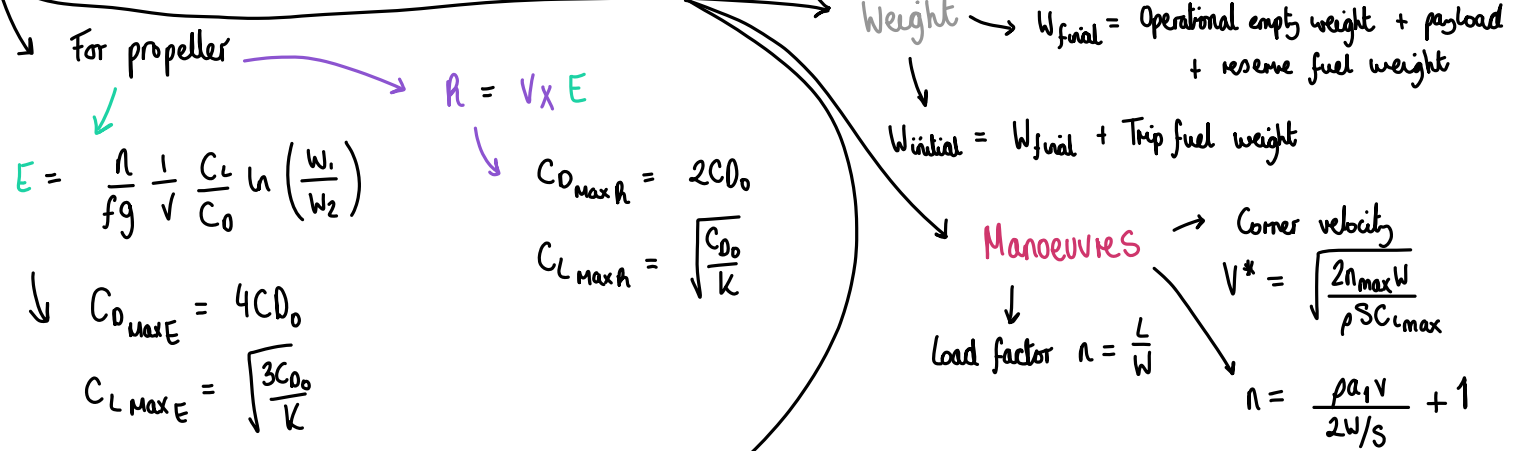 For propeller
R = V × E
E = η/fg 1/V C_L/C_D ln (W₁/W₂)
C_D_Max R = 2CD₀
C_L Max R = √(C_D₀/K)
C_D_Max E = 4CD₀
C_L Max E = √(3C_D₀/K)
Weight → W_final = Operational empty weight + payload
+ reserve fuel weight
W_initial = W_final + Trip fuel weight
Manoeuvres → Corner velocity
V* = √(2n_max W/ρSC_L max)
Load factor n = L/W
n = ρa₁v/2W/S + 1